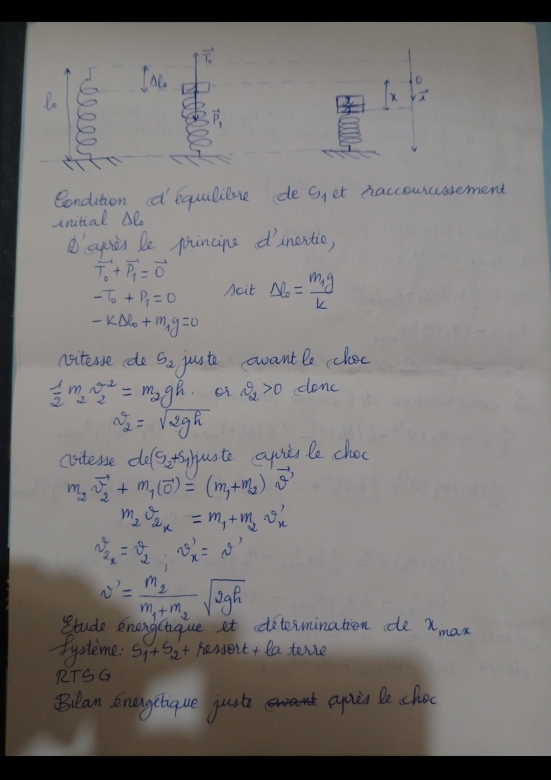 l₀ Δl₀ T⃗₀ P⃗₁ x 0 i⃗
Condition d'équilibre de S₁ et raccourcissement
initial Δl₀.
D'après le principe d'inertie,
T⃗₀ + P⃗₁ = 0⃗
-T₀ + P₁ = 0 soit Δl₀ = m₁g/k
-KΔl₀ + m₁g = 0
vitesse de S₂ juste avant le choc
1/2 m₂ v₂² = m₂gh. or v₂ > 0 donc
v₂ = √2gh
vitesse de (S₂+S₁) juste après le choc
m₂ v⃗₂ + m₁(0⃗) = (m₁+m₂) v⃗'
m₂ v₂ₓ = m₁+m₂ v'ₓ
v₂ₓ = v₂ ; v'ₓ = v'
v' = m₂/(m₁+m₂) √2gh
Etude énergétique et détermination de x max
Système: S₁+S₂+ ressort + la terre
RTSG
Bilan énergétique juste avant après le choc